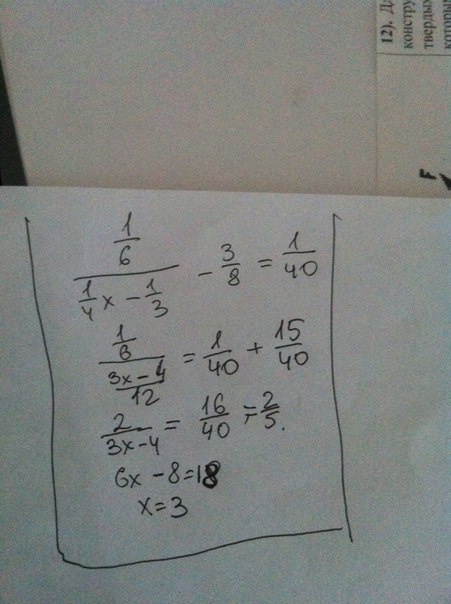 12). Д
констру
твердых
которы
F
1/6 / (1/4 x − 1/3) − 3/8 = 1/40
1/6 / ((3x − 4)/12) = 1/40 + 15/40
2/(3x−4) = 16/40 = 2/5.
6x − 8 = 18
x = 3